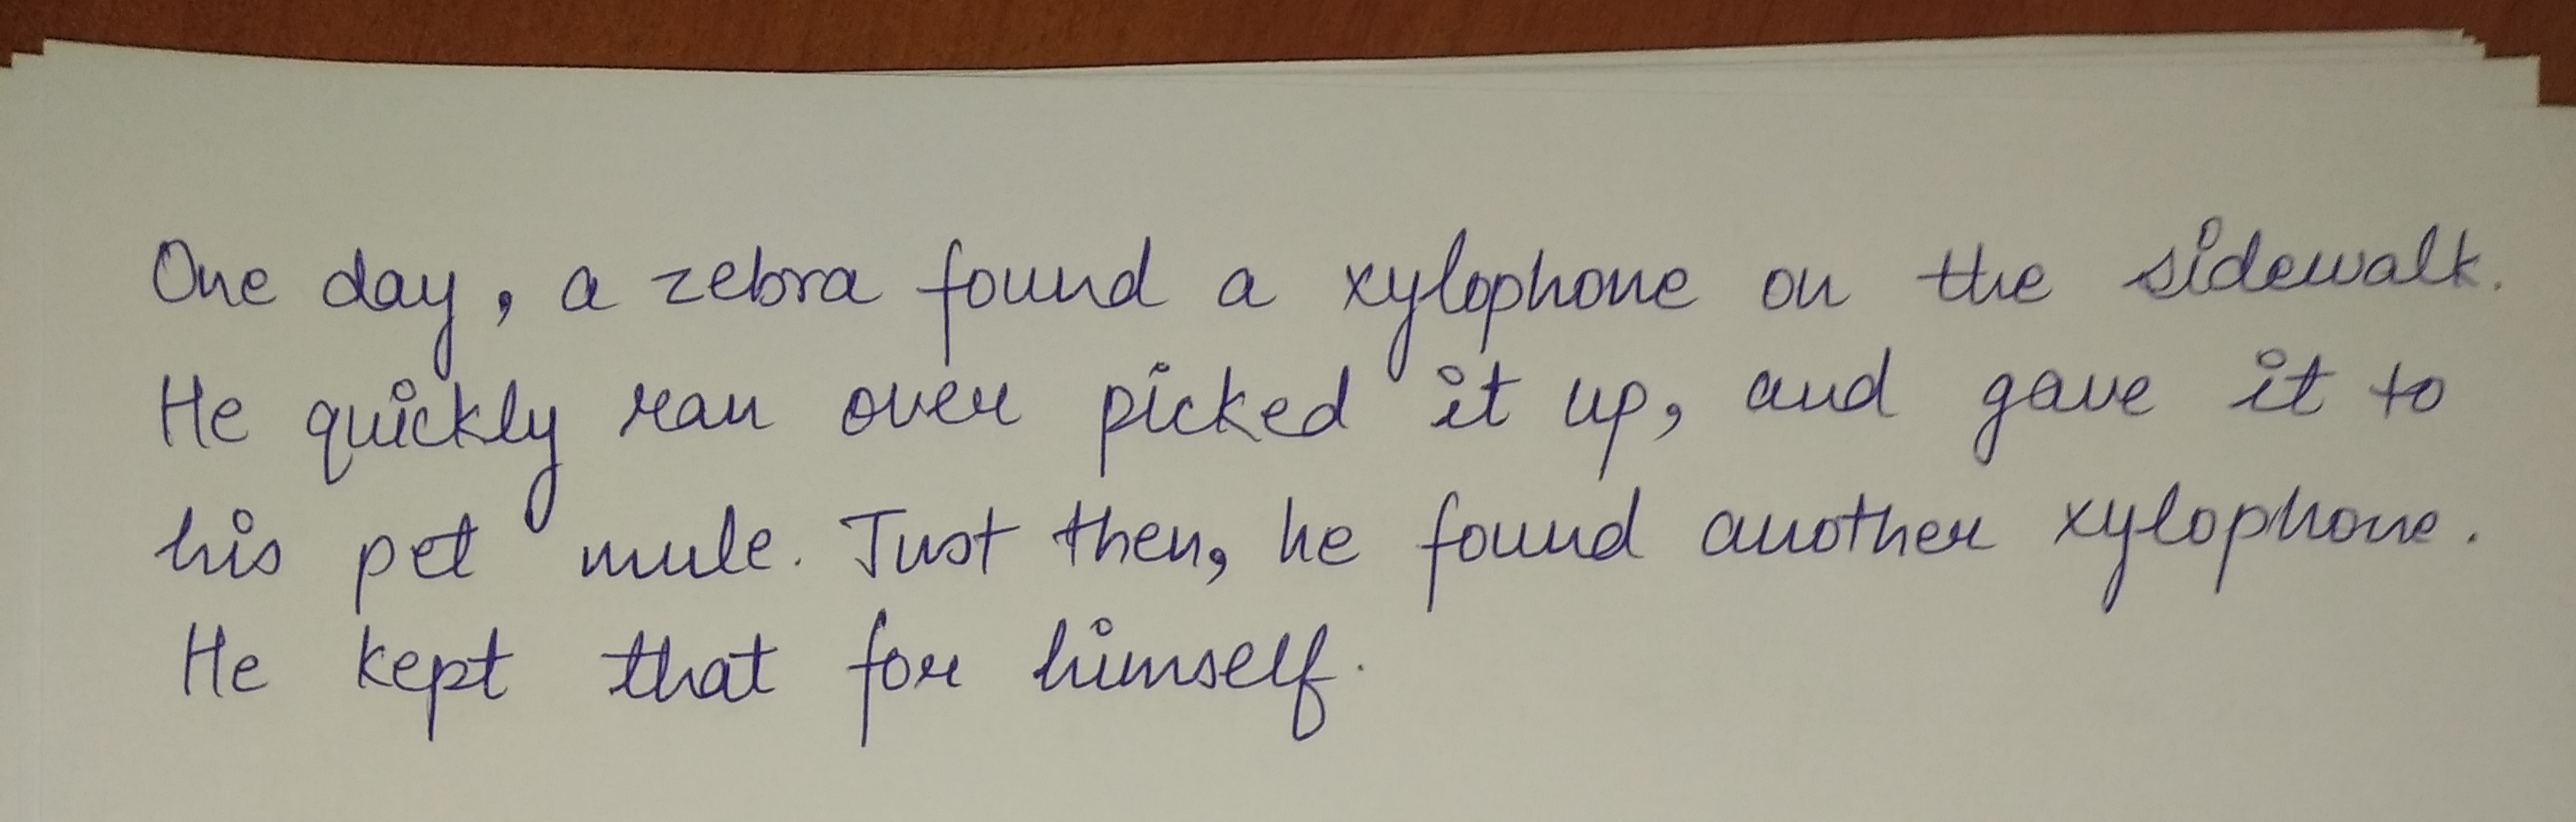 One day, a zebra found a xylophone on the sidewalk.
He quickly ran over picked it up, and gave it to
his pet mule. Just then, he found another xylophone.
He kept that for himself.